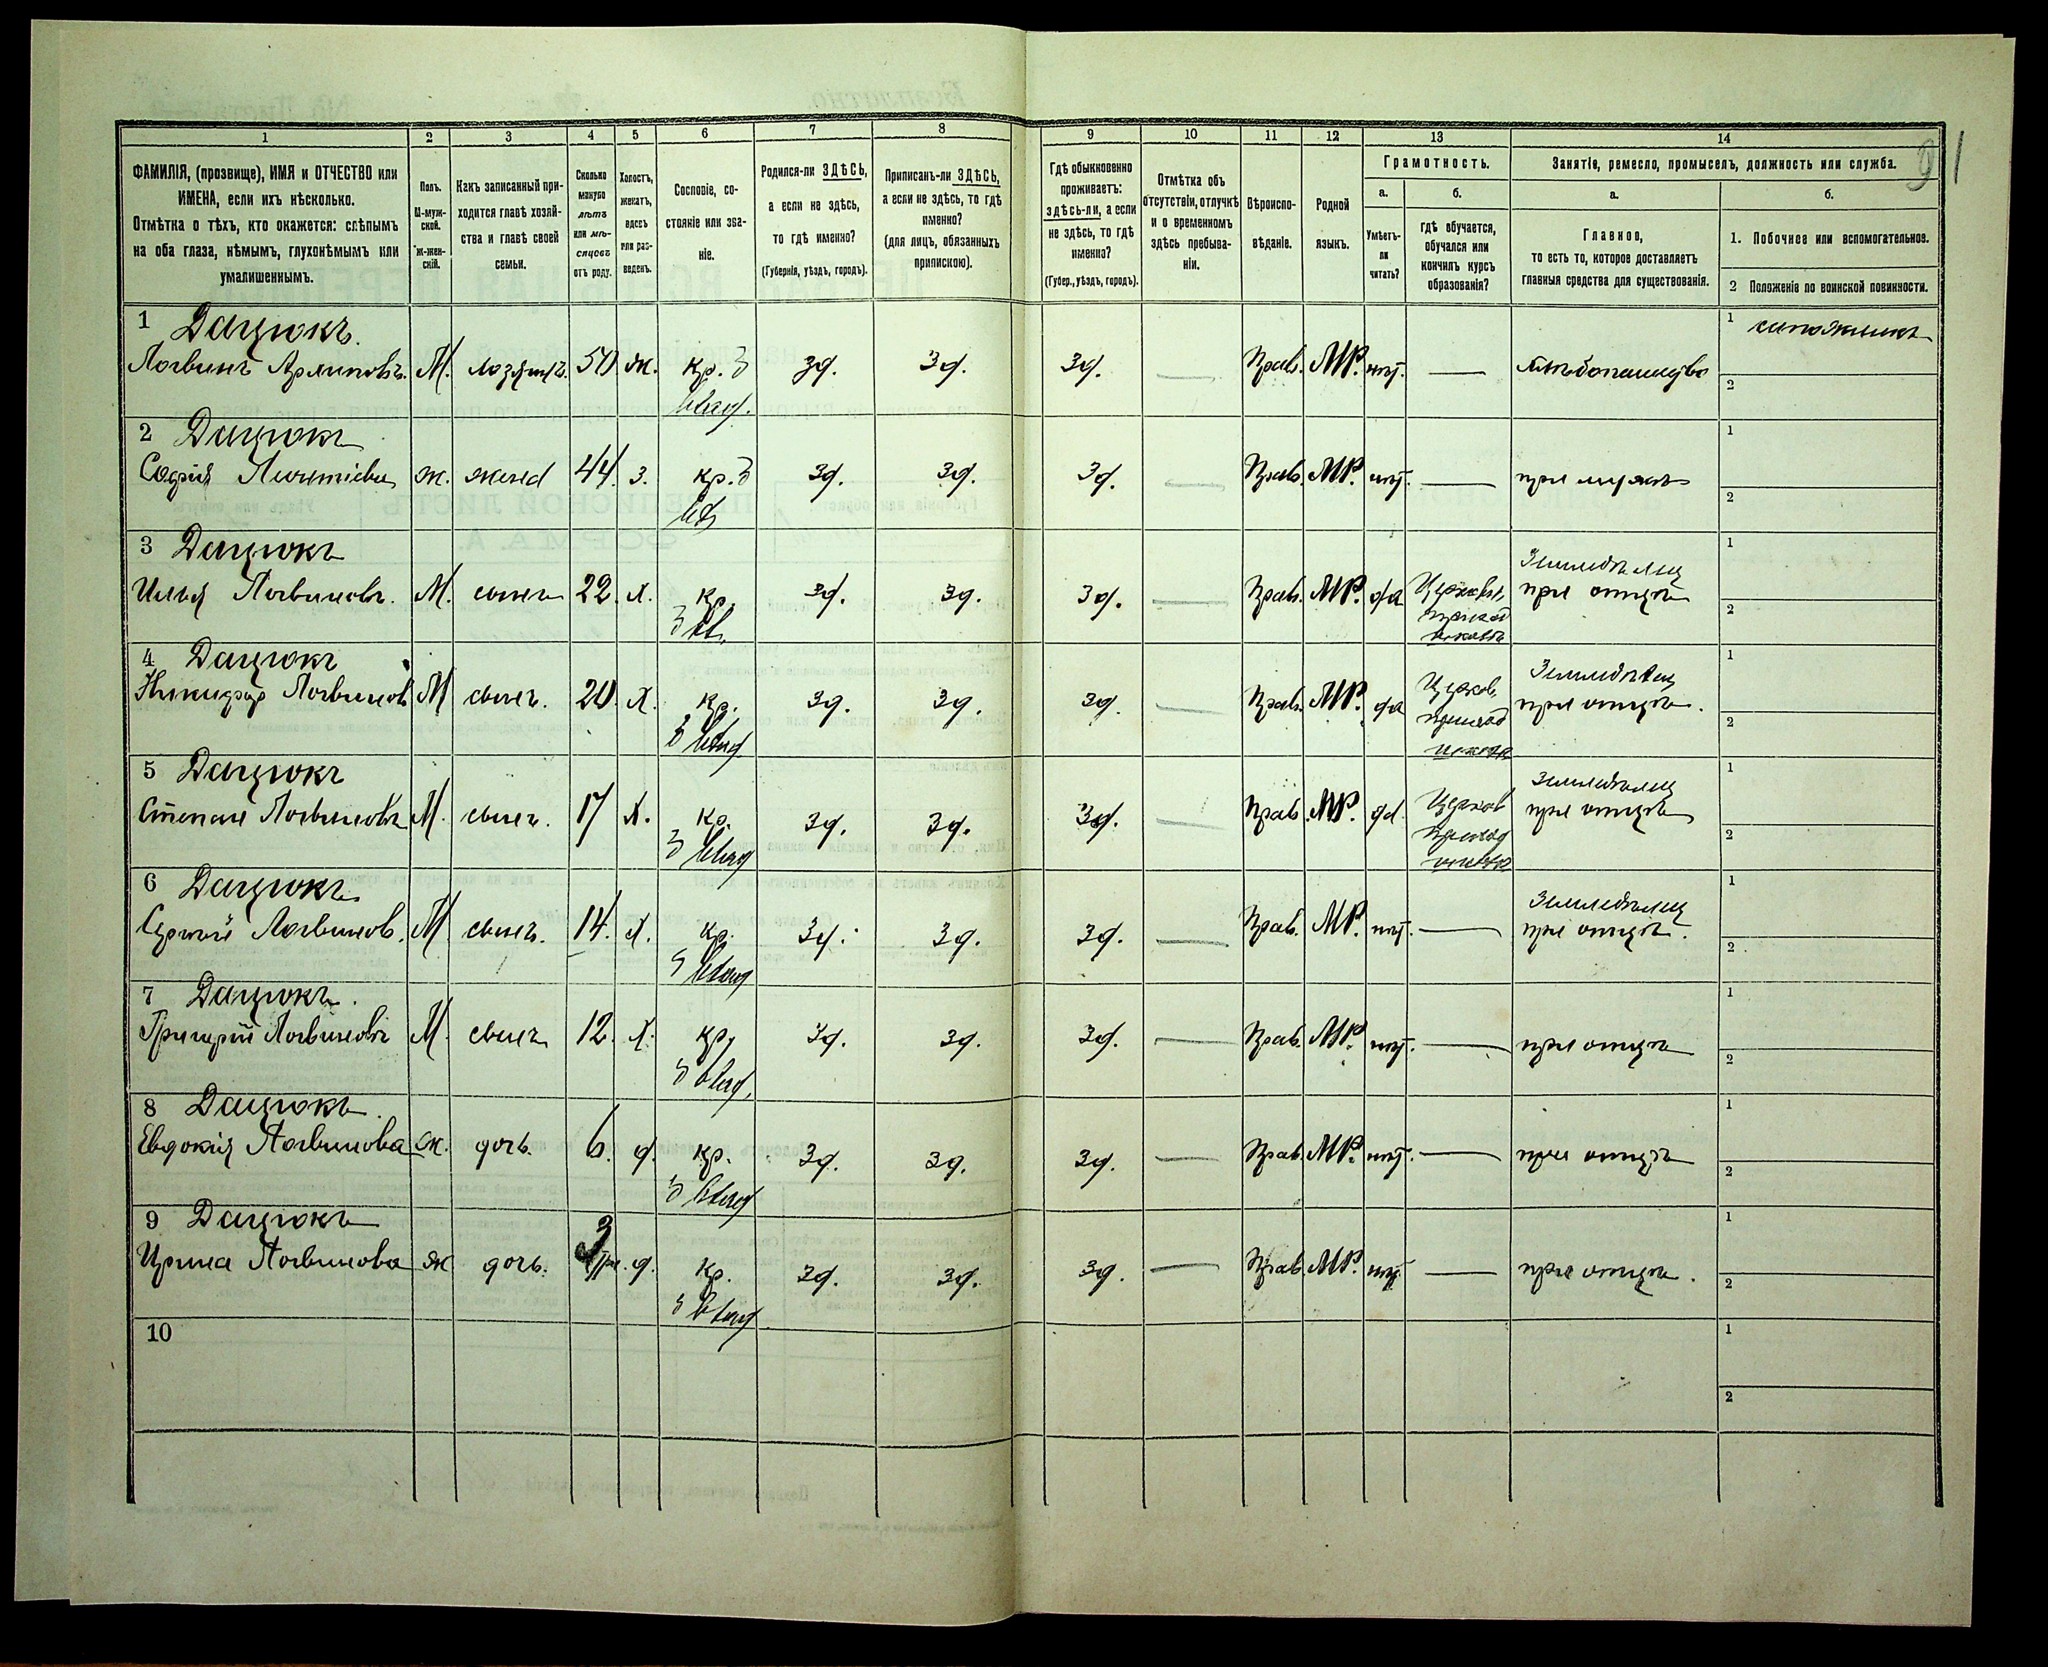 1 2 3 4 5 6 7 8 9 10 11 12 13 14
ФАМИЛІЯ, (прозвище), ИМЯ и ОТЧЕСТВО или
ИМЕНА, если ихъ нѣсколько.
Отмѣтка о тѣхъ, кто окажется: слѣпымъ
на оба глаза, нѣмымъ, глухонѣмымъ или
умалишеннымъ.
Полъ.
М-муж-
ской.
Ж-жен-
скій.
Какъ записанный при-
ходится главѣ хозяй-
ства и главѣ своей
семьи.
Сколько
минуло
лѣтъ
или мѣ-
сяцевъ
отъ роду.
Холостъ,
женатъ,
вдовъ
или раз-
веденъ.
Сословіе, со-
стояніе или зва-
ніе.
Родился-ли ЗДѢСЬ,
а если не здѣсь,
то гдѣ именно?
(Губернія, уѣздъ, городъ).
Приписанъ-ли ЗДѢСЬ,
а если не здѣсь, то гдѣ
именно?
(для лицъ, обязанныхъ
припискою).
Гдѣ обыкновенно
проживаетъ:
здѣсь-ли, а если
не здѣсь, то гдѣ
именно?
(Губер., уѣздъ, городъ).
Отмѣтка объ
отсутствіи, отлучкѣ
и о временномъ
здѣсь пребыва-
ніи.
Вѣроиспо-
вѣданіе.
Родной
языкъ.
Грамотность.
а. б.
Умѣетъ-
ли
читать?
гдѣ обучается,
обучался или
кончилъ курсъ
образованія?
Занятіе, ремесло, промыселъ, должность или служба.
а. б.
Главное,
то есть то, которое доставляетъ
главныя средства для существованія.
1. Побочное или вспомогательное.
2 Положеніе по воинской повинности.
91
1 Дацюкъ.
Логвинъ М. 50. ж. кр. зд. зд. зд. — Прав. МР. нѣт. — хлѣбопашество
1 сапожникъ
2
2 Дацюкъ
Софія ж. жена 44. з. кр. зд. зд. зд. — Прав. МР. нѣт. — при мужѣ
1
2
3 Дацюкъ
Илья Логвиновъ. М. сынъ 22. х. кр. зд. зд. зд. — Прав. МР. да Церковн.
приход
Земледѣлец
при отцѣ
1
2
4 Дацюкъ
Никифор Логвинов М сынъ. 20. х. кр. зд. зд. зд. — Прав. МР. да Церков.
приход
Земледѣлец
при отцѣ.
1
2
5 Дацюкъ
Степан Логвиновъ М. сынъ. 17 х. кр. зд. зд. зд. — Прав. МР. да. Церков
приход
Земледѣлец
при отцѣ
1
2
6 Дацюкъ.
Сергій Логвинов. М. сынъ. 14. х. кр. зд. зд. зд. — Прав. МР. нѣт. —
Земледѣлец
при отцѣ.
1
2
7 Дацюкъ.
Григорій Логвиновъ М. сынъ 12. х. кр. зд. зд. зд. — Прав. МР. нѣт. — при отцѣ
1
2
8 Дацюкъ.
Евдокія Логвинова ж. дочь. 6. д. кр. зд. зд. зд. — Прав. МР. нѣт. — при отцѣ
1
2
9 Дацюкъ
Ирина Логвинова ж дочь. 3 д. кр. зд. зд. зд. — Прав. МР. нѣт. — при отцѣ.
1
2
10
1
2